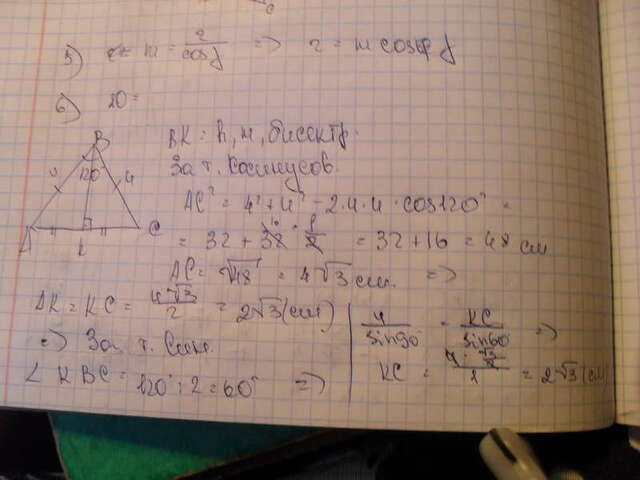 5) m = r/cosγ => r = m cosφ γ
6) 20 =
B
120°
4
A
C
BK = h, m, бисектр.
За т. Косинусов.
AC² = 4² + 4² - 2·4·4 · cos120° =
= 32 + 32 · 1/2 = 32 + 16 = 48 см
AC = √48 = 4√3 см. =>
AK = KC = 4√3/2 = 2√3 (см)
=> За т. Син.
∠KBC = 120° : 2 = 60° =>
4/sin90 = KC/sin60 =>
KC = 4·√3/2 / 1 = 2√3 (см)